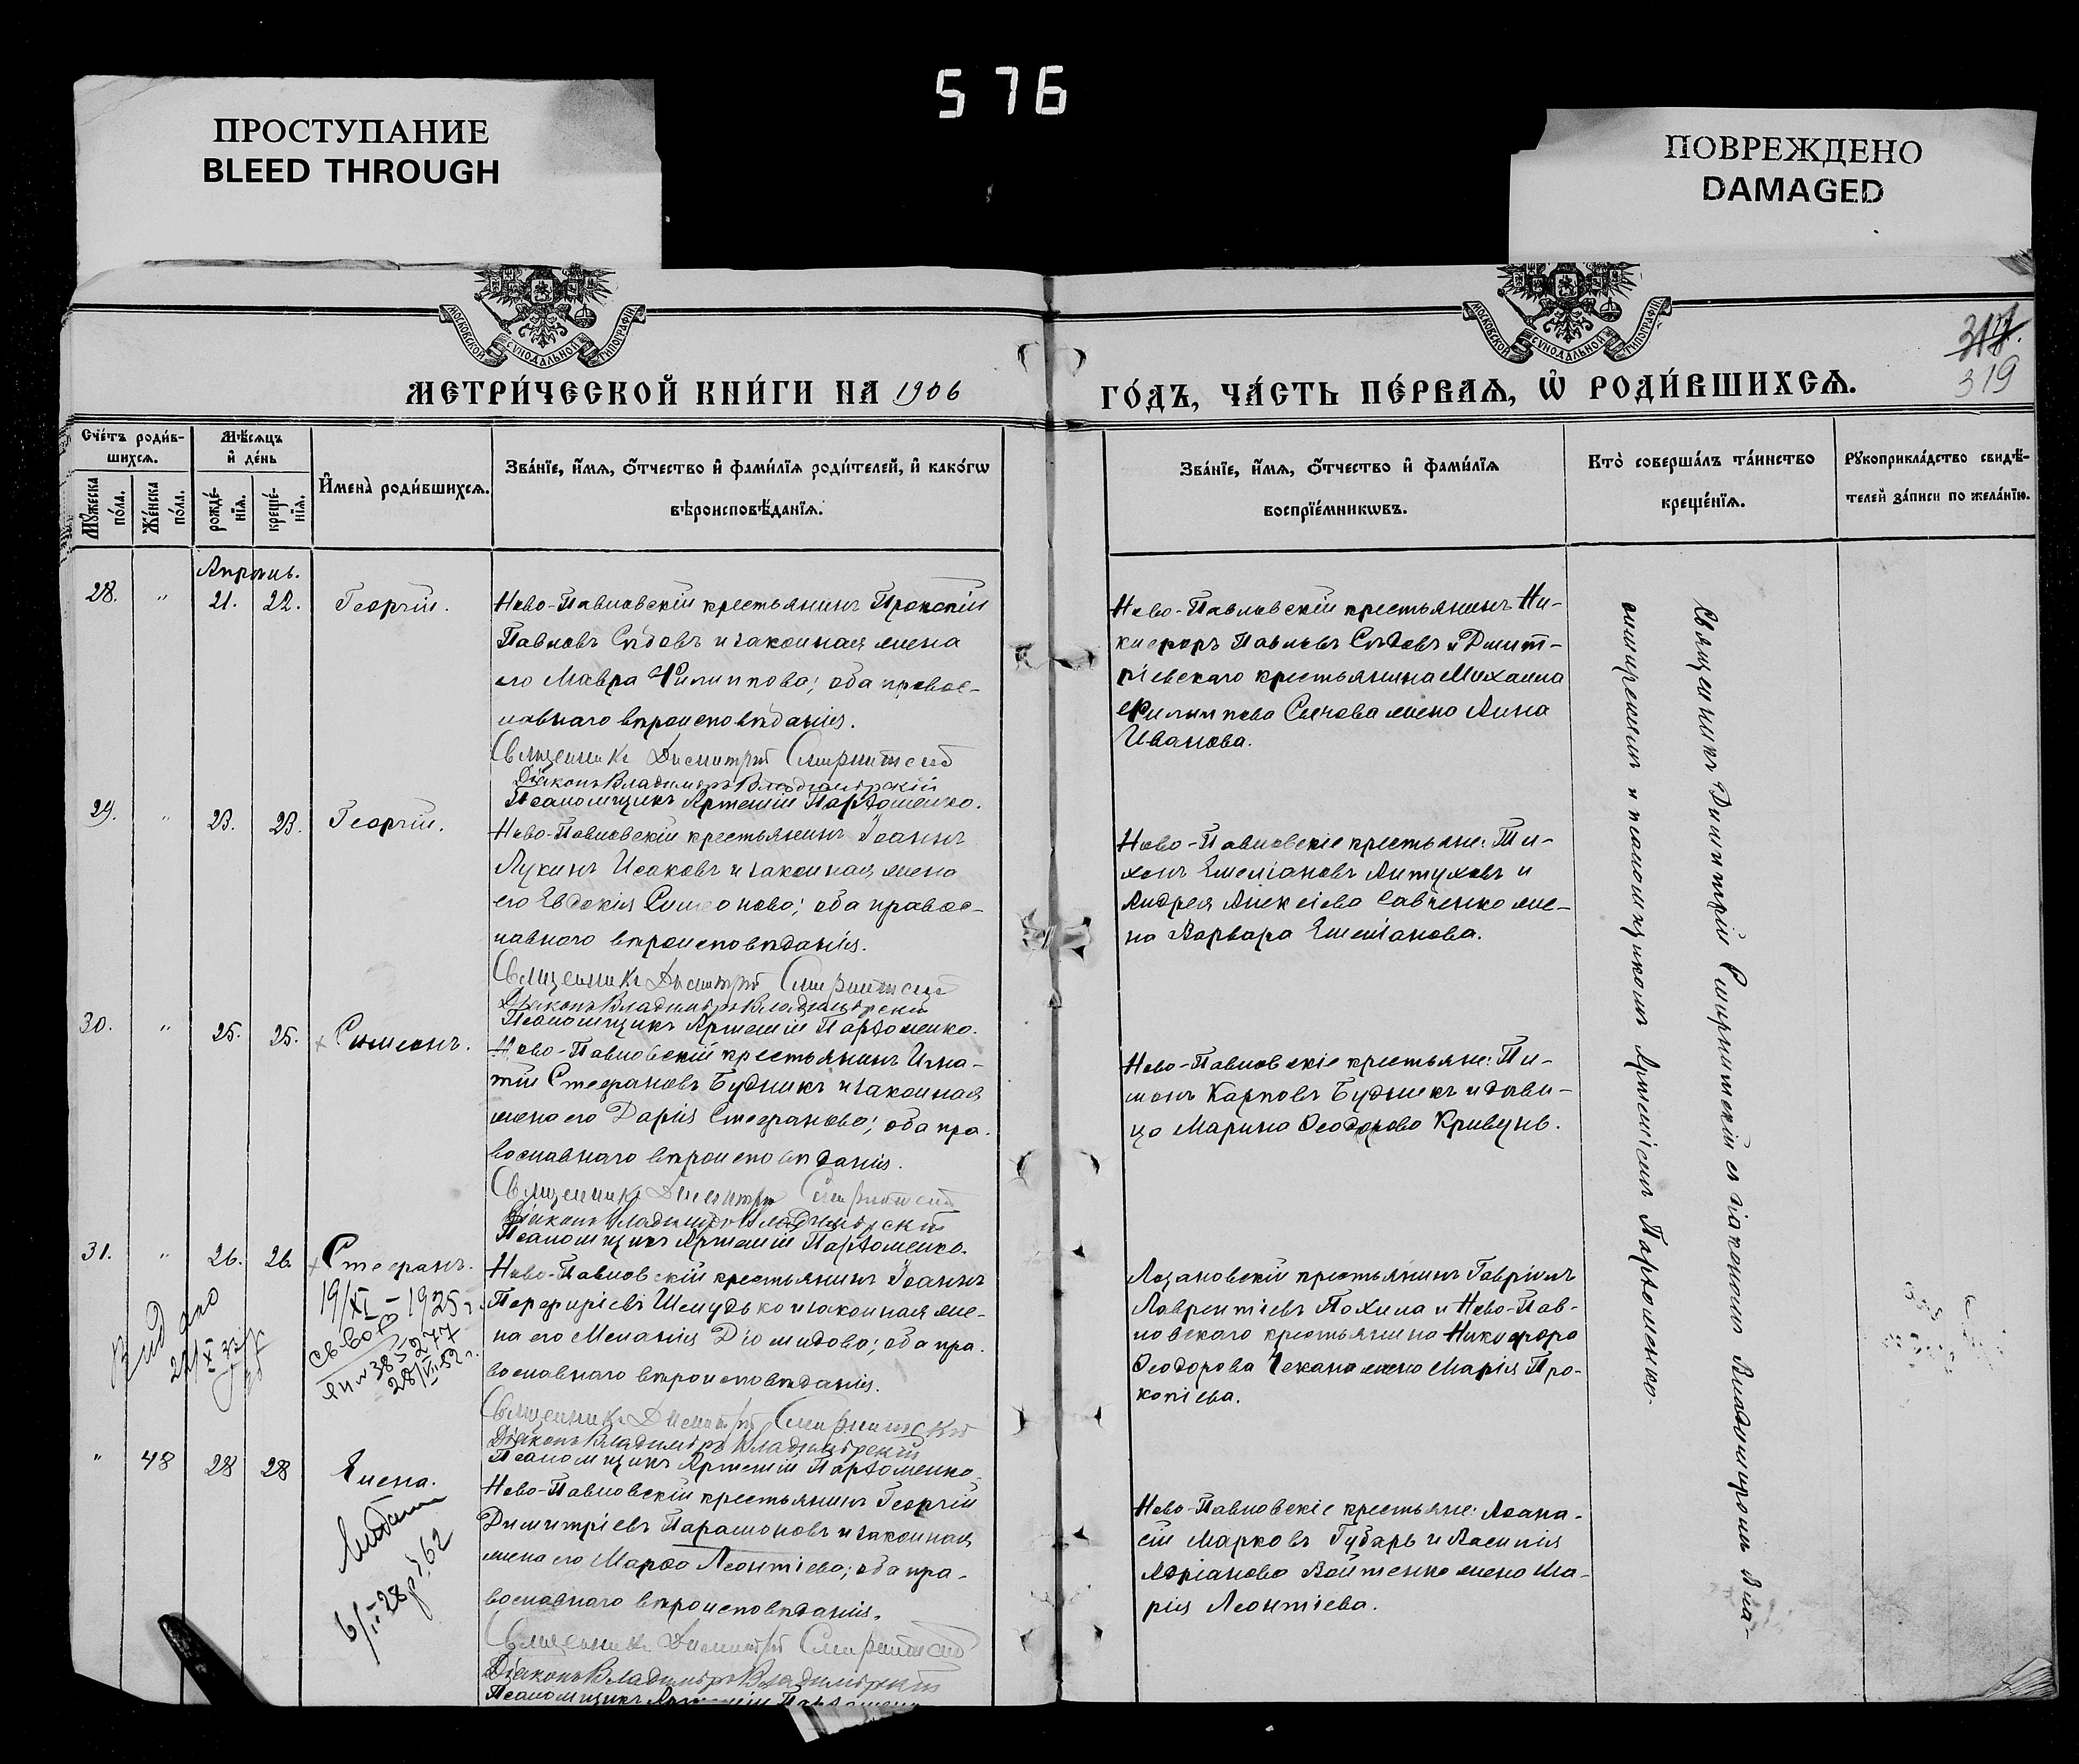 576
ПРОСТУПАНИЕ
BLEED THROUGH
ПОВРЕЖДЕНО
DAMAGED
МОСКОВСКОЙ СѴНОДАЛЬНОЙ ТИПОГРАФІИ
МОСКОВСКОЙ СѴНОДАЛЬНОЙ ТИПОГРАФІИ
319
МЕТРИ́ЧЕСКОЙ КНИ́ГИ НА 1906
ГО́ДЪ, ЧА́СТЬ ПЕ́РВАѦ, Ѡ҆ РОДИ́ВШИХСѦ.
Сче́тъ роди́в-
шихсѧ.
Мѣ́сѧцъ
и҆ де́нь
Мꙋ́жеска по́ла.
Же́нска по́ла.
рожде́-
нїѧ.
креще́-
нїѧ.
И҆мена̀ роди́вшихсѧ.
Зва́нїе, и҆́мѧ, ѻ҆́тчество и҆ фами́лїѧ роди́телей, и҆ како́гѡ
вѣроисповѣ́данїѧ.
Зва́нїе, и҆́мѧ, ѻ҆́тчество и҆ фами́лїѧ
воспрїе́мникѡвъ.
Кто̀ соверша́лъ та́инство
креще́нїѧ.
Рꙋкоприкла́дство свидѣ́-
телей за́писи по жела́нїю.
Апрѣль.
28. " 21. 22. Георгій.
Ново-Павловскій крестьянинъ Прокопій
Павловъ Сѣдовъ и законная жена
его Мавра Филиппова; оба правос-
лавнаго вѣроисповѣданія.
Священникъ Димитрій Смирнитскій
Діаконъ Владиміръ Владимірскій
Псаломщикъ Артемій Пархоменко.
Ново-Павловскій крестьянинъ Ни-
кифоръ Павловъ Сѣдовъ и Дмит-
ріевскаго крестьянина Михаила
Филиппова Сычова жена Анна
Иванова.
29. " 23. 23. Георгій.
Ново-Павловскій крестьянинъ Іоаннъ
Лукинъ Исаковъ и законная жена
его Евдокія Симеонова; оба правос-
лавнаго вѣроисповѣданія.
Священникъ Димитрій Смирнитскій
Діаконъ Владиміръ Владимірскій
Псаломщикъ Артемій Пархоменко.
Ново-Павловскіе крестьяне: Ти-
хонъ Емеліановъ Алтуховъ и
Андрея Алексіева Савченко же-
на Варвара Емеліанова.
30. " 25. 25. Симеонъ.
Ново-Павловскій крестьянинъ Игна-
тій Стефановъ Будникъ и законная
жена его Дарія Стефанова; оба пра-
вославнаго вѣроисповѣданія.
Священникъ Димитрій Смирнитскій
Діаконъ Владиміръ Владимірскій
Псаломщикъ Артемій Пархоменко.
Ново-Павловскіе крестьяне: Пи-
менъ Карповъ Будникъ и дѣви-
ца Марина Ѳеодорова Кривунь.
31. " 26. 26. Стефанъ.
19/XI - 1925 г.
Ново-Павловскій крестьянинъ Іоаннъ
Порфиріевъ Шелудько и законная же-
на его Меланія Діомидова; оба пра-
вославнаго вѣроисповѣданія.
Священникъ Димитрій Смирнитскій
Діаконъ Владиміръ Владимірскій
Псаломщикъ Артемій Пархоменко.
Лозановскій крестьянинъ Гавріилъ
Лаврентіевъ Похила и Ново-Пав-
ловскаго крестьянина Никифора
Ѳеодорова Чекана жена Марія Про-
копіева.
" 48 28 28 Елена.
Ново-Павловскій крестьянинъ Георгій
Димитріевъ Парамоновъ и законная
жена его Марѳа Леонтіева; оба пра-
вославнаго вѣроисповѣданія.
Священникъ Димитрій Смирнитскій
Діаконъ Владиміръ Владимірскій
Псаломщикъ Артемій Пархоменко
Ново-Павловскіе крестьяне: Аѳана-
сій Марковъ Губарь и Василія
Адріанова Войтенко жена Ма-
рія Леонтіева.
Священникъ Димитрій Смирнитскій съ діакономъ Владиміромъ Вла-
димірскимъ и псаломщикомъ Артеміемъ Пархоменко.